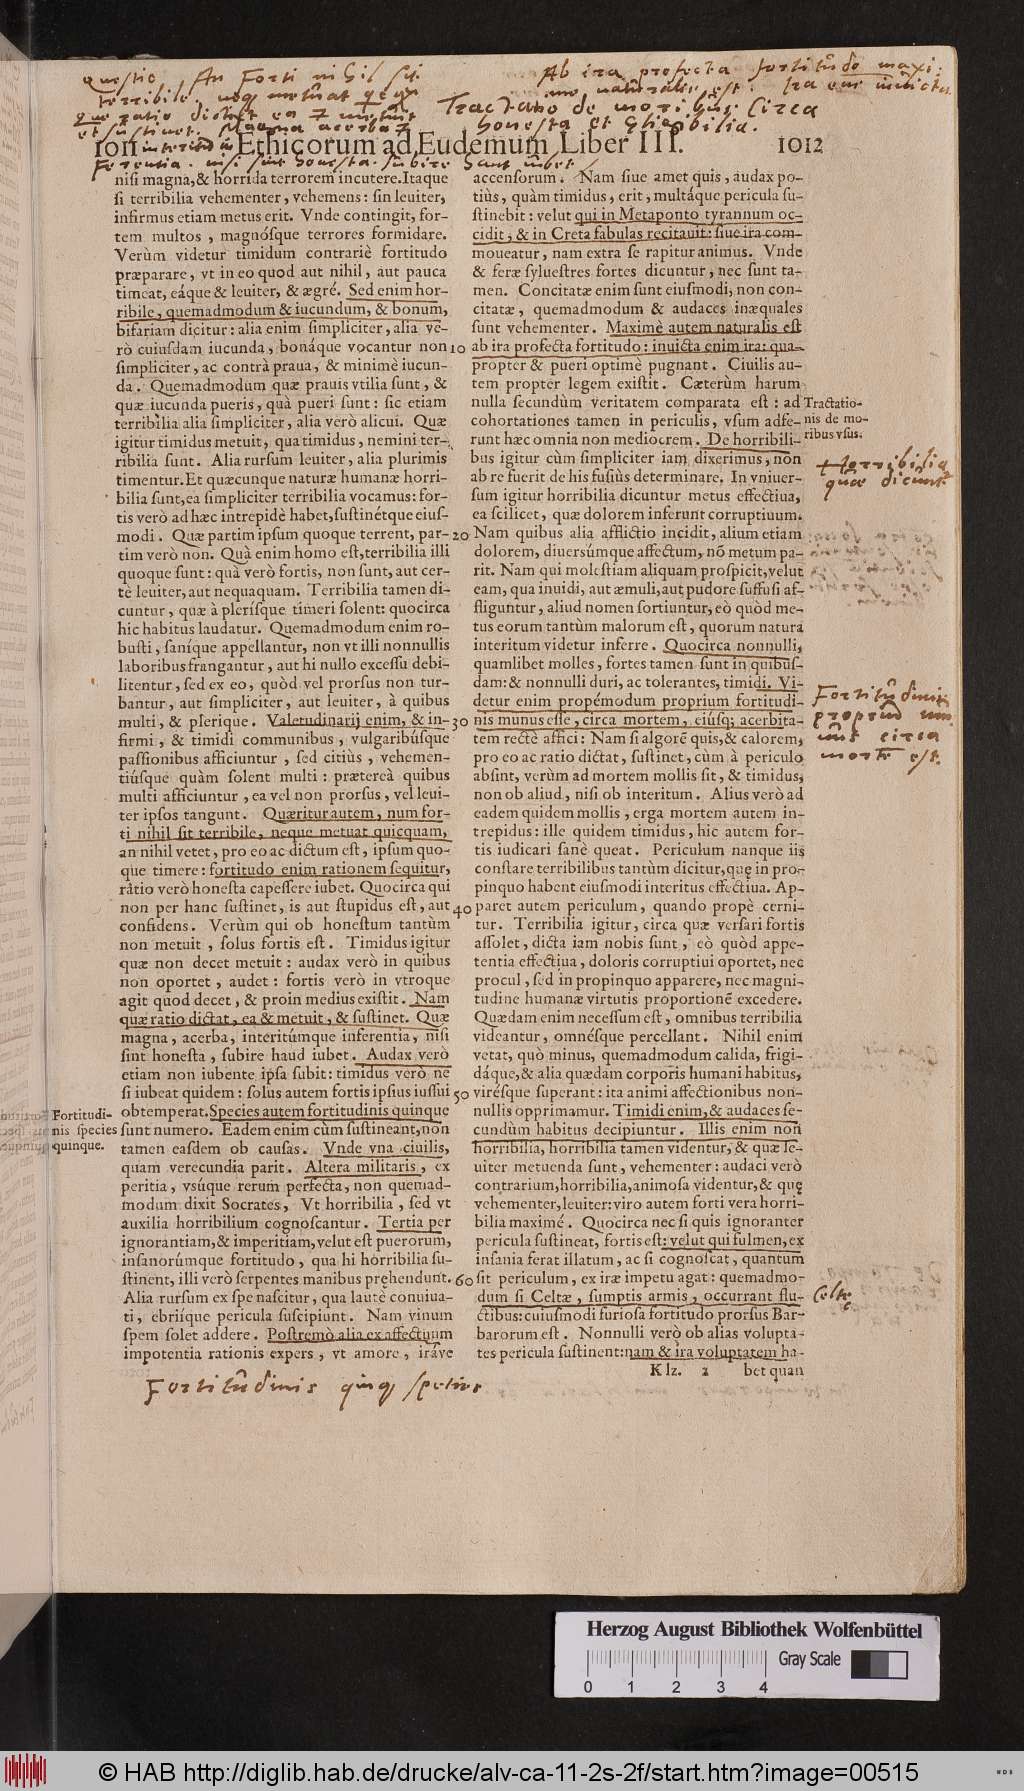 questio, An Forti nihil sit
terribile, neq metuat
que ratio dictat ea et metuit
et sustinet. Magna acerba et
Ab ira profecta fortitudo maxi:
me naturalis est. Ira eni invicta.
Tractatio de moribus circa
honesta et
1011 Ethicorum ad Eudemum Liber III. 1012
interitu in
Ferentia. nisi sint honesta. subire haut iubet
nisi magna, & horrida terrorem incutere. Itaque
si terribilia vehementer, vehemens: sin leuiter,
infirmus etiam metus erit. Vnde contingit, for-
tem multos, magnósque terrores formidare.
Verùm videtur timidum contrariè fortitudo
præparare, vt in eo quod aut nihil, aut pauca
timeat, eáque & leuiter, & ægré. Sed enim hor-
ribile, quemadmodum & iucundum, & bonum,
bifariam dicitur: alia enim simpliciter, alia ve-
rò cuiusdam iucunda, bonáque vocantur non
simpliciter, ac contrà praua, & minimè iucun-
da. Quemadmodum quæ prauis vtilia sunt, &
quæ iucunda pueris, quà pueri sunt: sic etiam
terribilia alia simpliciter, alia verò alicui. Quæ
igitur timidus metuit, qua timidus, nemini ter-
ribilia sunt. Alia rursum leuiter, alia plurimis
timentur. Et quæcunque naturæ humanæ horri-
bilia sunt, ea simpliciter terribilia vocamus: for-
tis verò ad hæc intrepidè habet, sustinétque eius-
modi. Quæ partim ipsum quoque terrent, par-
tim verò non. Quà enim homo est, terribilia illi
quoque sunt: quà verò fortis, non sunt, aut cer-
tè leuiter, aut nequaquam. Terribilia tamen di-
cuntur, quæ à plerísque timeri solent: quocirca
hic habitus laudatur. Quemadmodum enim ro-
busti, saníque appellantur, non vt illi nonnullis
laboribus frangantur, aut hi nullo excessu debi-
litentur, sed ex eo, quòd vel prorsus non tur-
bantur, aut simpliciter, aut leuiter, à quibus
multi, & plerique. Valetudinarij enim, & in-
firmi, & timidi communibus, vulgaribúsque
passionibus afficiuntur, sed citiùs, vehemen-
tiúsque quàm solent multi: prætereà quibus
multi afficiuntur, ea vel non prorsus, vel leui-
ter ipsos tangunt. Quæritur autem, num for-
ti nihil sit terribile, neque metuat quicquam,
an nihil vetet, pro eo ac dictum est, ipsum quo-
que timere: fortitudo enim rationem sequitur,
ratio verò honesta capessere iubet. Quocirca qui
non per hanc sustinet, is aut stupidus est, aut
confidens. Verùm qui ob honestum tantùm
non metuit, solus fortis est. Timidus igitur
quæ non decet metuit: audax verò in quibus
non oportet, audet: fortis verò in vtroque
agit quod decet, & proin medius existit. Nam
quæ ratio dictat, ea & metuit, & sustinet. Quæ
magna, acerba, interitúmque inferentia, nisi
sint honesta, subire haud iubet. Audax verò
etiam non iubente ipsa subit: timidus verò ne
si iubeat quidem: solus autem fortis ipsius iussui
obtemperat. Species autem fortitudinis quinque
sunt numero. Eadem enim cùm sustineant, non
tamen easdem ob causas. Vnde vna ciuilis,
quam verecundia parit. Altera militaris, ex
peritia, vsúque rerum perfecta, non quemad-
modum dixit Socrates, Vt horribilia, sed vt
auxilia horribilium cognoscantur. Tertia per
ignorantiam, & imperitiam, velut est puerorum,
insanorúmque fortitudo, qua hi horribilia su-
stinent, illi verò serpentes manibus prehendunt.
Alia rursum ex spe nascitur, qua lautè conuiua-
ti, ebriíque pericula suscipiunt. Nam vinum
spem solet addere. Postremò alia ex affectuum
impotentia rationis expers, vt amore, iráve
Fortitudi-
nis species
quinque.
Fortitudinis quinq species
10
20
30
40
50
60
accensorum. Nam siue amet quis, audax po-
tiùs, quàm timidus, erit, multáque pericula su-
stinebit: velut qui in Metaponto tyrannum oc-
cidit, & in Creta fabulas recitauit: siue ira com-
moueatur, nam extra se rapitur animus. Vnde
& feræ syluestres fortes dicuntur, nec sunt ta-
men. Concitatæ enim sunt eiusmodi, non con-
citatæ, quemadmodum & audaces inæquales
sunt vehementer. Maximè autem naturalis est
ab ira profecta fortitudo: inuicta enim ira: qua-
propter & pueri optimè pugnant. Ciuilis au-
tem propter legem existit. Cæterùm harum
nulla secundùm veritatem comparata est: ad
cohortationes tamen in periculis, vsum adfe-
runt hæc omnia non mediocrem. De horribili-
bus igitur cùm simpliciter iam dixerimus, non
ab re fuerit de his fusiùs determinare. In vniuer-
sum igitur horribilia dicuntur metus effectiua,
ea scilicet, quæ dolorem inferunt corruptiuum.
Nam quibus alia afflictio incidit, alium etiam
dolorem, diuersúmque affectum, nō metum pa-
rit. Nam qui molestiam aliquam prospicit, velut
eam, qua inuidi, aut æmuli, aut pudore suffusi af-
fliguntur, aliud nomen sortiuntur, eò quòd me-
tus eorum tantùm malorum est, quorum natura
interitum videtur inferre. Quocirca nonnulli,
quamlibet molles, fortes tamen sunt in quibus-
dam: & nonnulli duri, ac tolerantes, timidi. Vi-
detur enim propémodum proprium fortitudi-
nis munus esse, circa mortem, eiúsq; acerbita-
tem rectè affici: Nam si algorē quis, & calorem,
pro eo ac ratio dictat, sustinet, cùm à periculo
absint, verùm ad mortem mollis sit, & timidus,
non ob aliud, nisi ob interitum. Alius verò ad
eadem quidem mollis, erga mortem autem in-
trepidus: ille quidem timidus, hic autem for-
tis iudicari sanè queat. Periculum nanque iis
constare terribilibus tantùm dicitur, quę in pro-
pinquo habent eiusmodi interitus effectiua. Ap-
paret autem periculum, quando propè cerni-
tur. Terribilia igitur, circa quæ versari fortis
assolet, dicta iam nobis sunt, eò quòd appe-
tentia effectiua, doloris corruptiui oportet, nec
procul, sed in propinquo apparere, nec magni-
tudine humanæ virtutis proportionē excedere.
Quædam enim necessum est, omnibus terribilia
videantur, omnésque percellant. Nihil enim
vetat, quò minus, quemadmodum calida, frigi-
dáque, & alia quædam corporis humani habitus,
virésque superant: ita animi affectionibus non-
nullis opprimamur. Timidi enim, & audaces se-
cundùm habitus decipiuntur. Illis enim non
horribilia, horribilia tamen videntur, & quæ le-
uiter metuenda sunt, vehementer: audaci verò
contrarium, horribilia, animosa videntur, & quę
vehementer, leuiter: viro autem forti vera horri-
bilia maximé. Quocirca nec si quis ignoranter
pericula sustineat, fortis est: velut qui fulmen, ex
insania ferat illatum, ac si cognoscat, quantum
sit periculum, ex iræ impetu agat: quemadmo-
dum si Celtæ, sumptis armis, occurrant flu-
ctibus: cuiusmodi furiosa fortitudo prorsus Bar-
barorum est. Nonnulli verò ob alias volupta-
tes pericula sustinent: nam & ira voluptatem ha-
Klz. 2 bet quan
Tractatio-
nis de mo-
ribus vsus.
Horribilia
quæ dicunt
Fortitudinis
propriū mu
nus circa
mortē est.
Celtę
Herzog August Bibliothek Wolfenbüttel
Gray Scale
0 1 2 3 4
© HAB http://diglib.hab.de/drucke/alv-ca-11-2s-2f/start.htm?image=00515